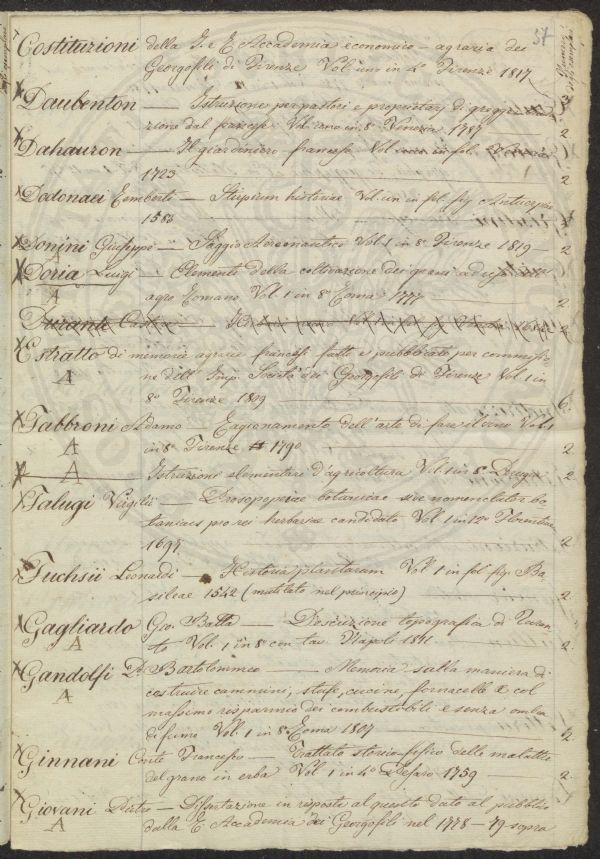 37
Costituzioni della I. e R. Accademia economico-agraria dei
Georgofili di Firenze Vol. un in 4° Firenze 1817
Daubenton — Istruzione per pastori e proprietarj di greggi
zione dal francese Vol. uno in 8° Venezia 1787 — 2
Dahauron — Il giardiniero francese Vol.
1723 — 2
Dodonaei Remberti — Stirpium historiae Vol. un in fol. fig. Antuerpiae
1583
Donini Giuseppe — Saggio Aereonautico Vol. 1 in 8° Firenze 1819 — 2
A
Doria Luigi — Elementi della coltivazione dei grani ad uso dell'
A
agro Romano Vol. 1 in 8° Roma 1777 — 2
Durante Castor
Estratto di memorie agrarie francesi fatto e pubblicato per commissio-
A
ne dell' Imp. Società dei Georgofili di Firenze Vol. 1 in
8° Firenze 1809 — 6
Fabbroni Adamo — Ragionamento dell'arte di fare il vino Vol. 1
A
in 8° Firenze 1790 — 2
A — Istruzioni elementari d'agricoltura Vol. 1 in 8° — 2
Falugi Virgilii — Prosopopeiae botanicae sive nomenclator bo-
tanicus pro rei herbariae candidato Vol. 1 in 12° Florentiae
1697 — 2
Fuchsii Leonardi — Historia plantarum Vol. 1 in fol. fig. Ba-
sileae 1542 (mutilato nel principio) — 2
Gagliardo Gio. Batta — Descrizione topografica di Taran-
A
to Vol. 1 in 8° con tav. Napoli 1811 — 2
Gandolfi D. Bartolommeo — Memoria sulla maniera di
A
costruire cammini, stufe, cucine, fornacelle & col
massimo risparmio dei combustibili e senza ombra
di fumo Vol. 1 in 8° Roma 1807 — 2
Ginnani Conte Francesco — Trattato storico-fisico delle malattie
del grano in erba Vol. 1 in 4° Pesaro 1759 — 2
Giovani Pietro — Dissertazione in risposta al quesito dato al pubblico
A
dalla R. Accademia dei Georgofili nel 1778-79 sopra